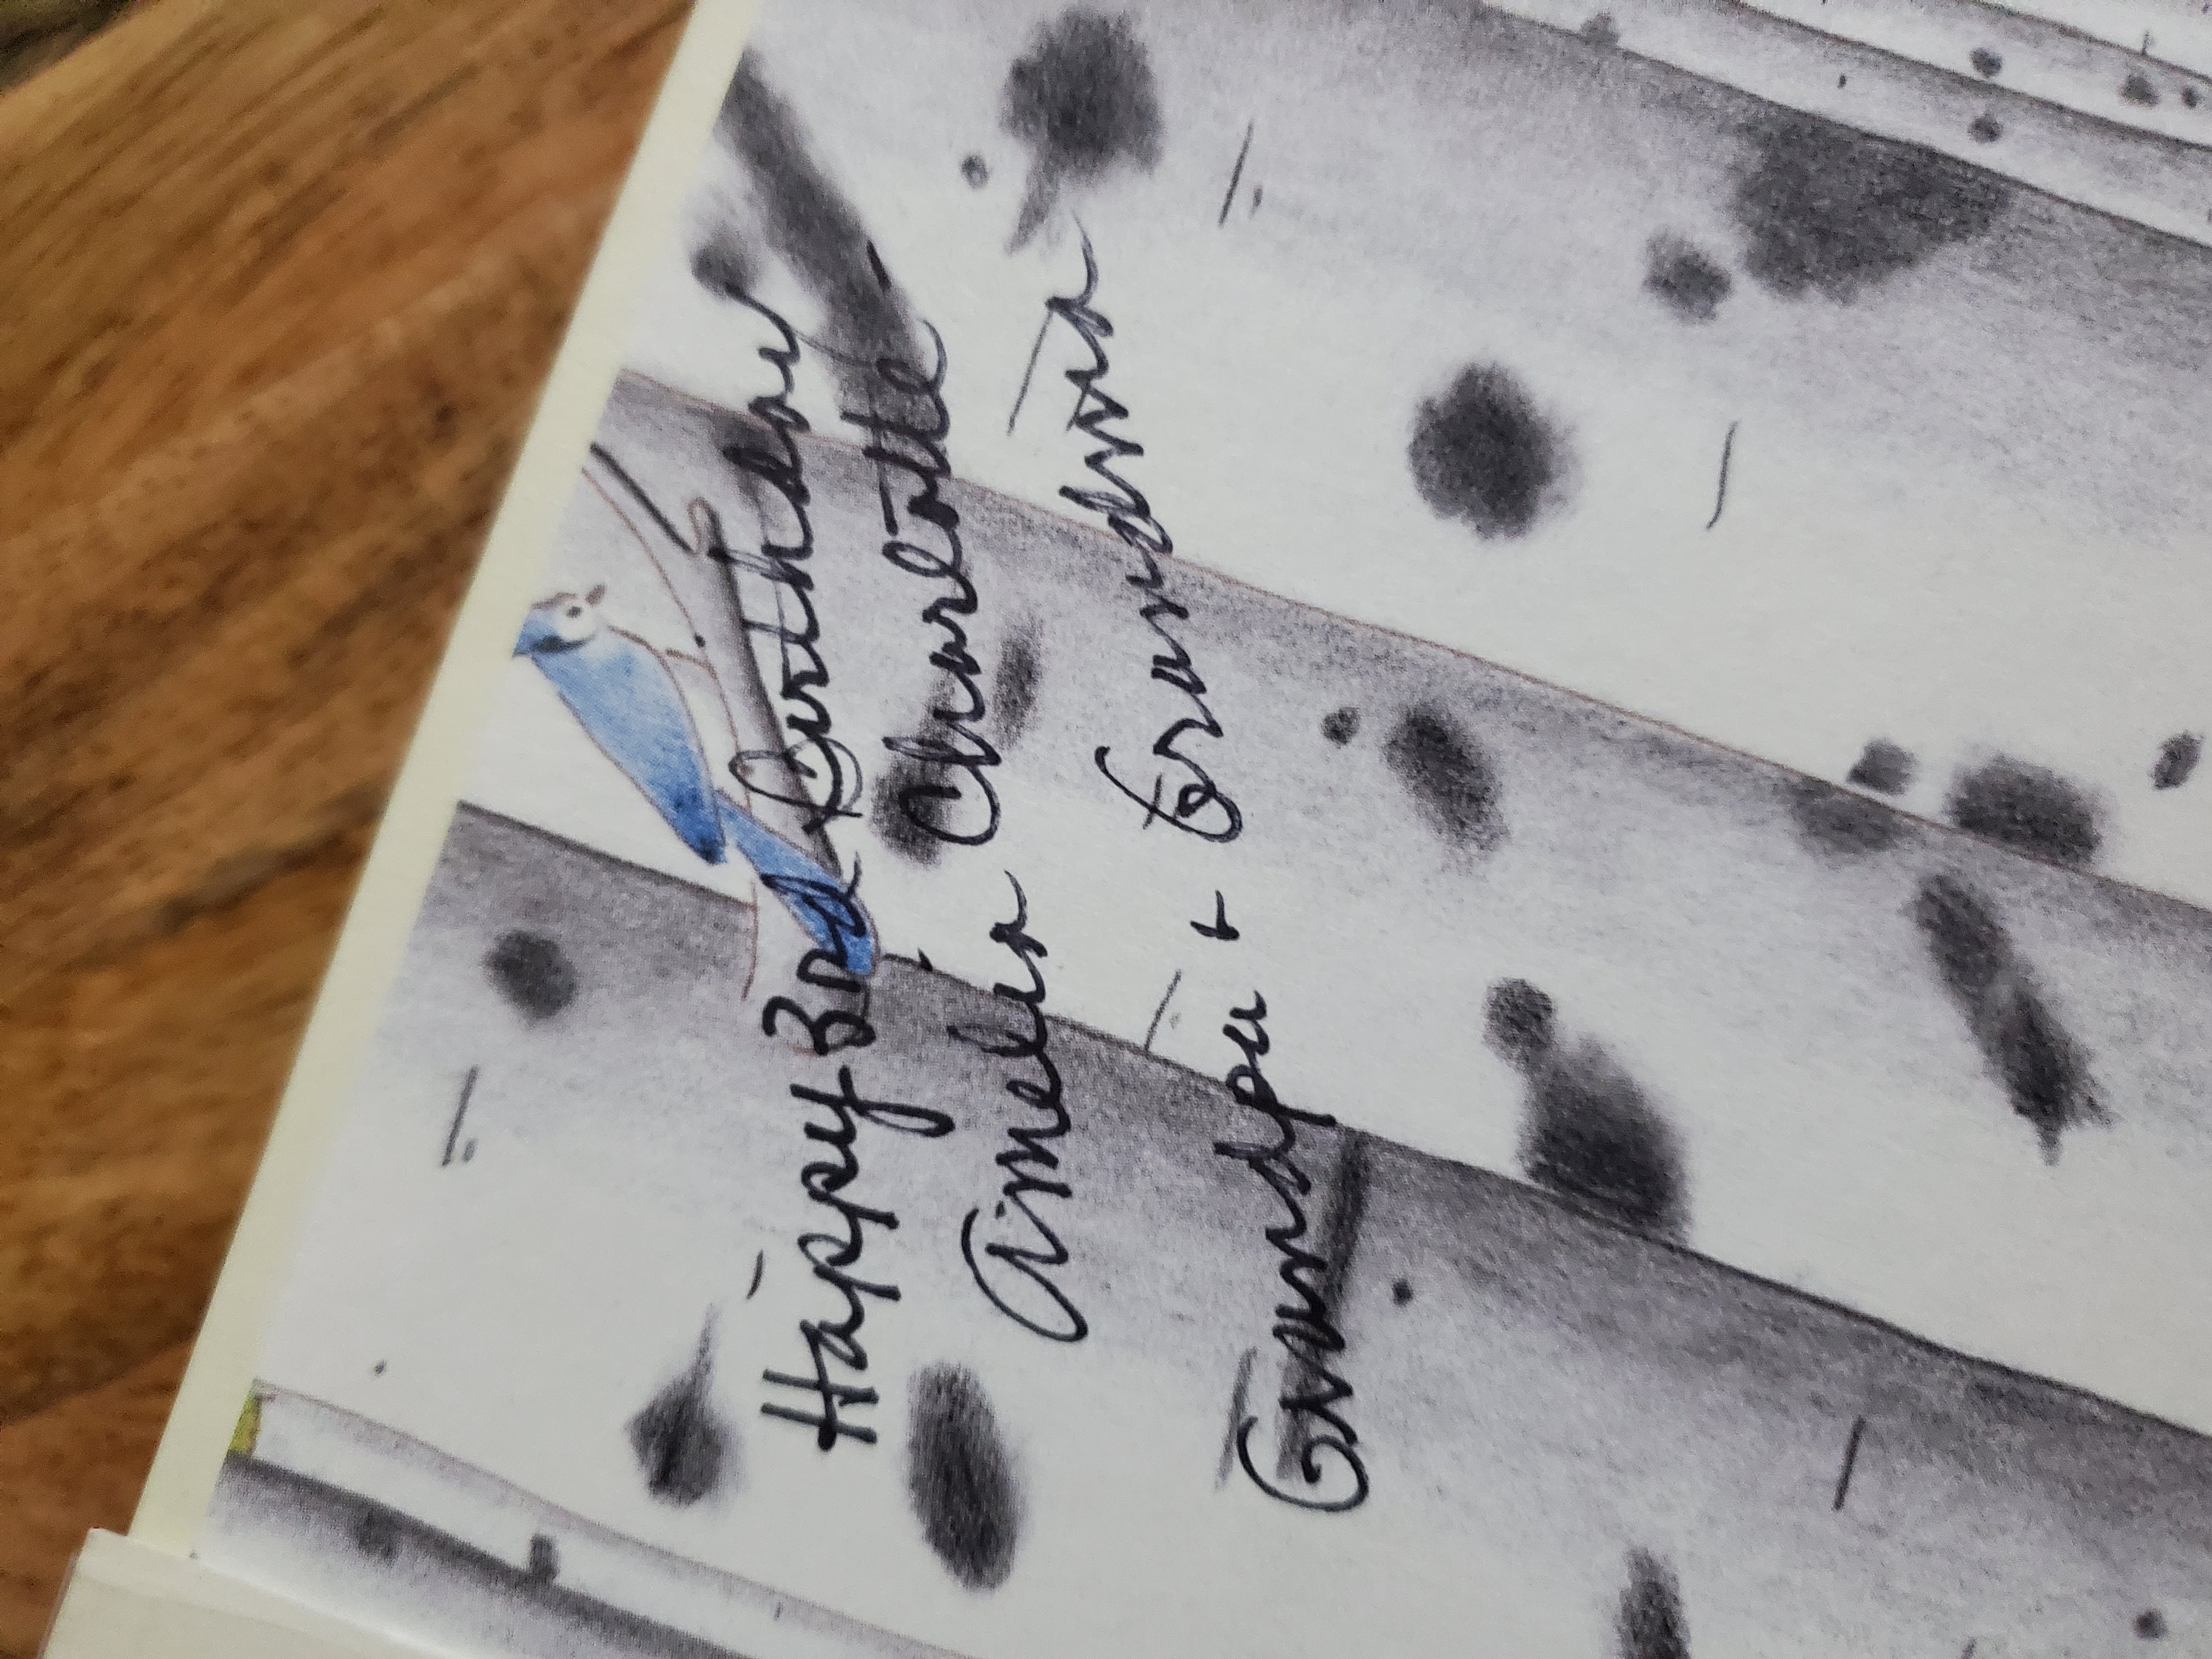 Happy 3rd Birthday
Amelia Charlotte
Grandpa + Grandma